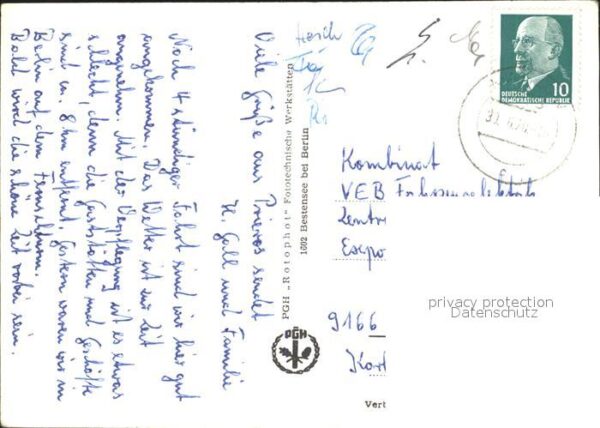 Viele Grüße aus Prieros sendet
H. Gall und Familie
Noch 4 stündiger Fahrt sind wir hier gut
angekommen. Das Wetter ist zur Zeit
angenehm. Mit der Verpflegung ist es etwas
schlecht, denn die Gaststätten und Geschäfte
sind ca. 8 km entfernt. Gestern waren wir in
Berlin auf dem Fernsehturm.
Bald wird die schöne Zeit vorbei sein.
PGH „Rotophot" Fototechnische Werkstätten
1602 Bestensee bei Berlin
PGH
10
DEUTSCHE
DEMOKRATISCHE REPUBLIK
Kombinat
VEB
Zentr
Expo
9166
Kort
Vert
privacy protection
Datenschutz